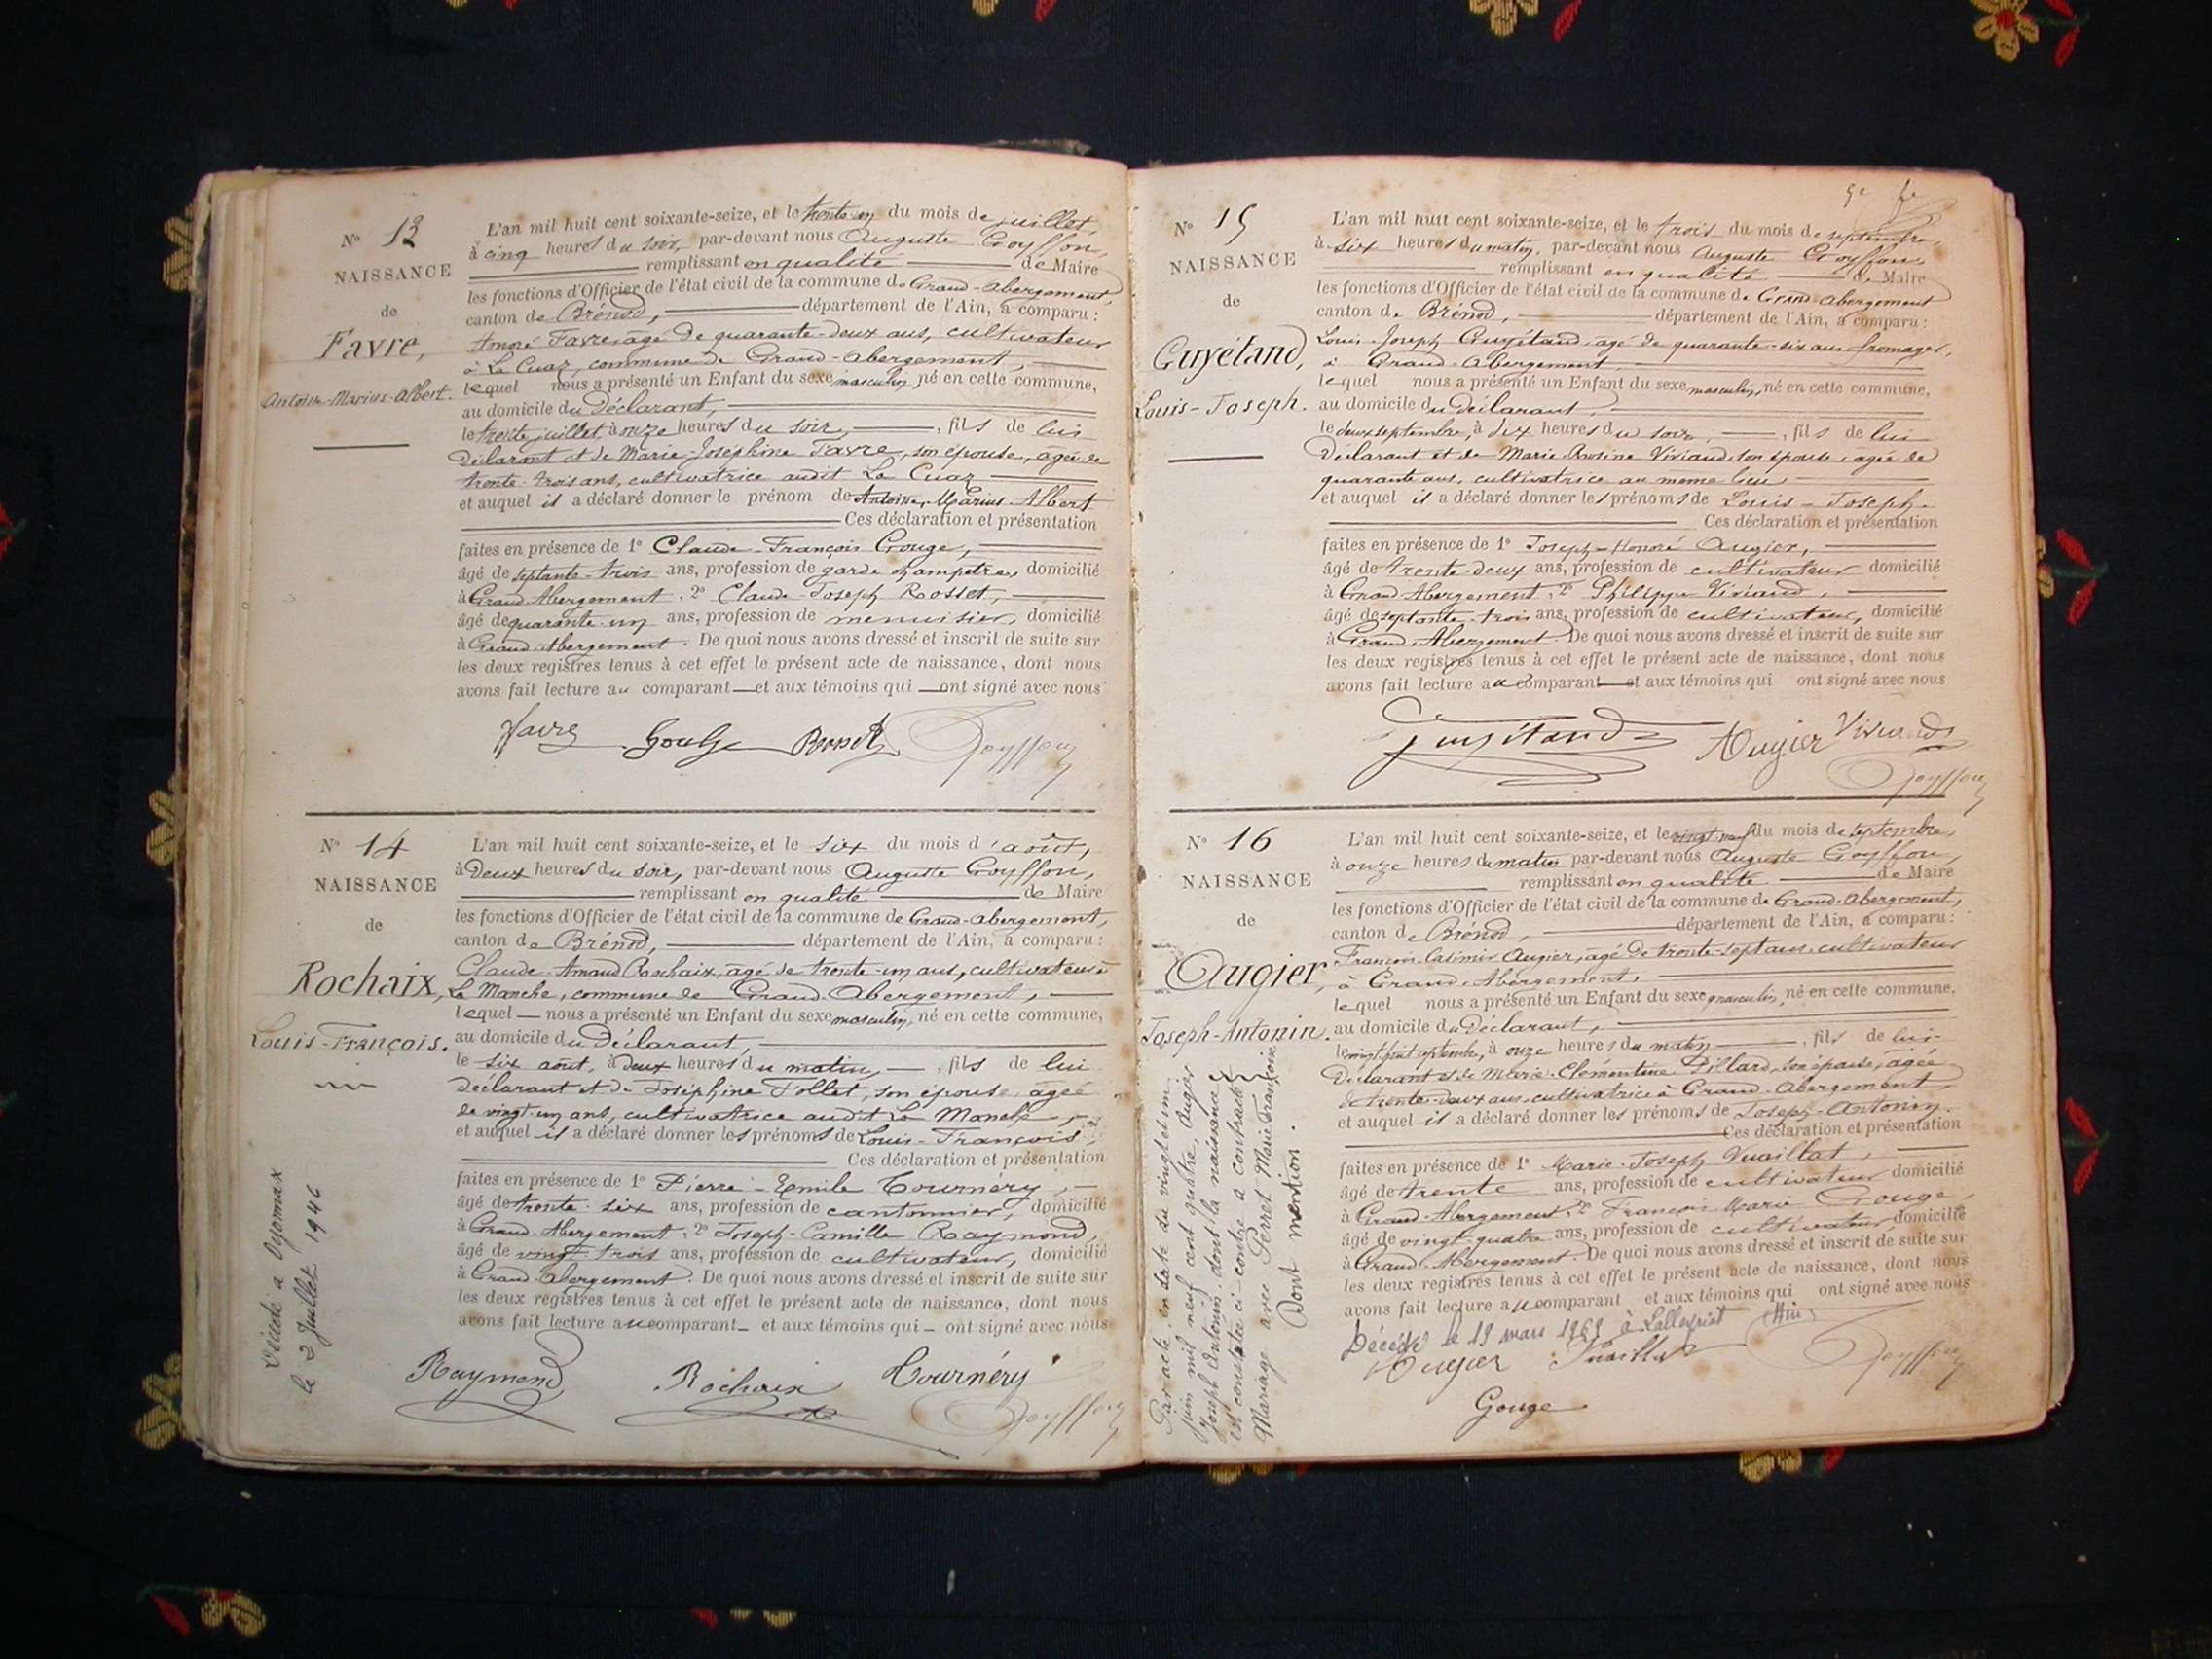 N° 13
NAISSANCE
de
Favre,
Antoine-Marius-Albert.
L'an mil huit cent soixante-seize, et le trente-un du mois de juillet,
à cinq heures du soir, par-devant nous Auguste Goyffon,
remplissant en qualité de Maire
les fonctions d'Officier de l'état civil de la commune de Grand-Abergement,
canton de Brénod, département de l'Ain, a comparu :
Honoré Favre, agé de quarante-deux ans, cultivateur
à La Cuaz, commune de Grand-Abergement,
lequel nous a présenté un Enfant du sexe masculin, né en cette commune,
au domicile du Déclarant,
le trente juillet, à onze heures du soir, , fils de lui
Déclarant et de Marie-Joséphine Favre, son épouse, agée de
trente-trois ans, cultivatrice audit La Cuaz
et auquel il a déclaré donner le prénom de Antoine-Marius-Albert
Ces déclaration et présentation
faites en présence de 1° Claude-François Gouge,
âgé de septante-trois ans, profession de garde champetre, domicilié
à Grand-Abergement, 2° Claude-Joseph Rosset,
âgé de quarante-un ans, profession de menuisier, domicilié
à Grand-Abergement. De quoi nous avons dressé et inscrit de suite sur
les deux registres tenus à cet effet le présent acte de naissance, dont nous
avons fait lecture au comparant et aux témoins qui ont signé avec nous
Favre Gouge Rosset Goyffon
N° 14
NAISSANCE
de
Rochaix,
Louis-François.
Décédé à Oyonnax
le 2 Juillet 1946
L'an mil huit cent soixante-seize, et le six du mois d'août,
à Deux heures du soir, par-devant nous Auguste Goyffon,
remplissant en qualité de Maire
les fonctions d'Officier de l'état civil de la commune de Grand-Abergement,
canton de Brénod, département de l'Ain, a comparu :
Claude-Amand Rochaix, agé de trente-un ans, cultivateur à
La Manche, commune de Grand-Abergement,
lequel nous a présenté un Enfant du sexe masculin, né en cette commune,
au domicile du Déclarant,
le six août, à deux heures du matin, , fils de lui
déclarant et de Joséphine Pollet, son épouse, agée
de vingt-un ans, cultivatrice audit La Manche
et auquel il a déclaré donner les prénoms de Louis-François
Ces déclaration et présentation
faites en présence de 1° Pierre-Emile Tournéry,
âgé de trente-six ans, profession de cantonnier, domicilié
à Grand-Abergement, 2° Joseph-Camille Raymond,
âgé de vingt-trois ans, profession de cultivateur, domicilié
à Grand-Abergement. De quoi nous avons dressé et inscrit de suite sur
les deux registres tenus à cet effet le présent acte de naissance, dont nous
avons fait lecture au comparant et aux témoins qui ont signé avec nous
Raymond Rochaix Tournéry
Goyffon
N° 15
NAISSANCE
de
Guyétand,
Louis-Joseph.
L'an mil huit cent soixante-seize, et le trois du mois de septembre,
à six heures du matin, par-devant nous Auguste Goyffon,
remplissant en qualité de Maire
les fonctions d'Officier de l'état civil de la commune de Grand-Abergement
canton de Brénod, département de l'Ain, a comparu :
Louis-Joseph Guyétand, agé de quarante-six ans, fromager,
à Grand-Abergement
lequel nous a présenté un Enfant du sexe masculin, né en cette commune,
au domicile du déclarant,
le deux septembre, à dix heures du soir, , fils de lui
Déclarant et de Marie-Rosine Viviand, son épouse, agée de
quarante ans, cultivatrice au meme lieu
et auquel il a déclaré donner les prénoms de Louis-Joseph.
Ces déclaration et présentation
faites en présence de 1° Joseph-Honoré Augier,
âgé de trente-deux ans, profession de cultivateur domicilié
à Grand-Abergement, 2° Philippe Viviand,
âgé de septante-trois ans, profession de cultivateur, domicilié
à Grand-Abergement. De quoi nous avons dressé et inscrit de suite sur
les deux registres tenus à cet effet le présent acte de naissance, dont nous
avons fait lecture au comparant et aux témoins qui ont signé avec nous
Guyétand Augier Viviand
Goyffon
N° 16
NAISSANCE
de
Augier,
Joseph-Antonin.
Par acte en date du vingt et un
juin mil neuf cent quatre, Augier
Joseph Antonin dont la naissance
est constatée ci-contre a contracté
Mariage avec Perret Marie Françoise
Dont mention.
L'an mil huit cent soixante-seize, et le vingt-neuf du mois de septembre,
à onze heures du matin par-devant nous Auguste Goyffon,
remplissant en qualité de Maire
les fonctions d'Officier de l'état civil de la commune de Grand-Abergement,
canton de Brénod, département de l'Ain, a comparu :
François-Casimir Augier, agé de trente-sept ans, cultivateur
à Grand-Abergement,
lequel nous a présenté un Enfant du sexe masculin, né en cette commune,
au domicile du Déclarant,
le vingt-huit septembre, à onze heures du matin, fils de lui
Déclarant et de Marie-Clémentine Billard, son épouse, agée
de trente-deux ans, cultivatrice à Grand-Abergement,
et auquel il a déclaré donner les prénoms de Joseph-Antonin.
Ces déclaration et présentation
faites en présence de 1° Marie-Joseph Vuaillat,
âgé de trente ans, profession de cultivateur domicilié
à Grand-Abergement, 2° François-Marie Gouge,
âgé de vingt-quatre ans, profession de cultivateur, domicilié
à Grand-Abergement. De quoi nous avons dressé et inscrit de suite sur
les deux registres tenus à cet effet le présent acte de naissance, dont nous
avons fait lecture au comparant et aux témoins qui ont signé avec nous
Décédé le 19 mars 1969 à Lalleyriat (Ain)
Augier Vuaillat Goyffon
Gouge